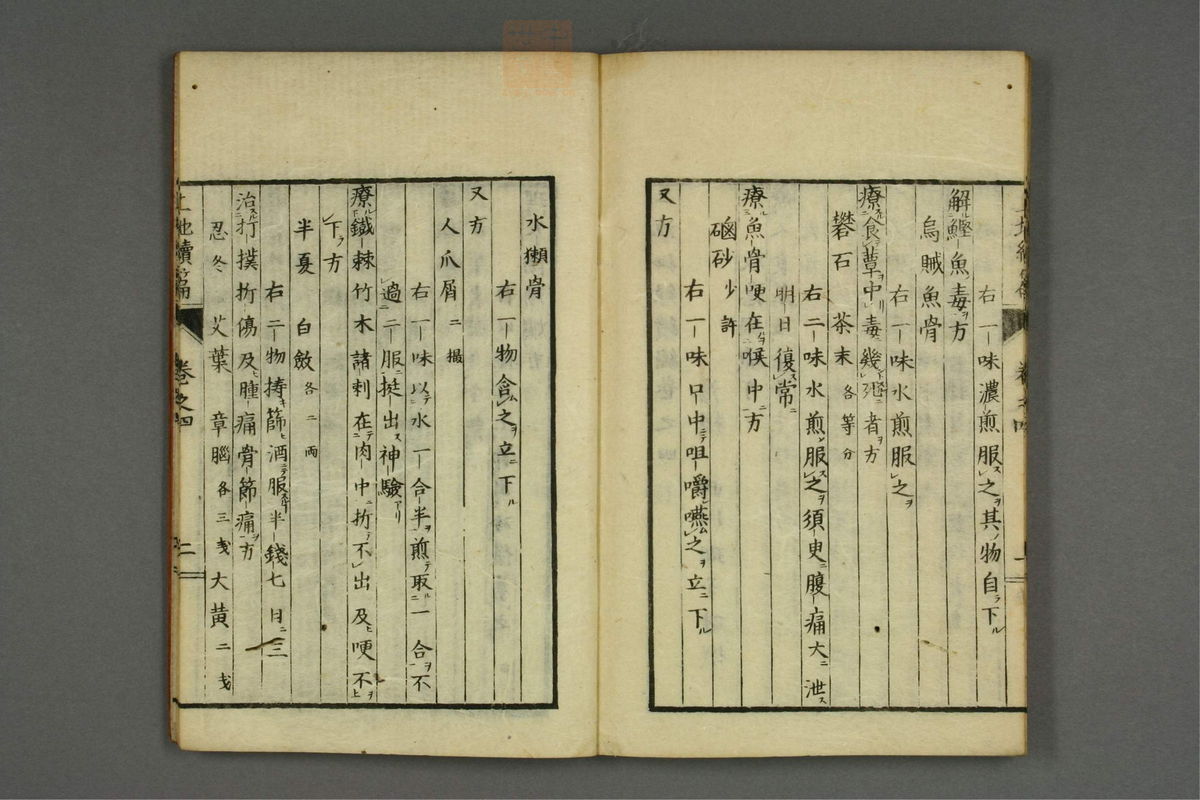 右一味濃煎服之其物自下
解鰹魚毒方
烏賊魚骨
右一味水煎服之
療食蕈中毒幾死者方
礬石 茶末 各等分
右二味水煎服之須臾腹痛大泄
明日復常
療魚骨哽在喉中方
磠砂少許
右一味口中咀嚼嚥之立下
又方
水獺骨
右一物含之立下
又方
人爪屑二撮
右一味以水一合半煎取一合不
過二服挺出神驗
療鐵棘竹木諸刺在肉中折不出及哽不
下方
半夏 白斂 各二兩
右二物擣篩酒服半錢七日三
治打撲折傷及腫痛骨節痛方
忍冬 艾葉 章腦 各三戔 大黃 二戔
續篇 卷之四 二